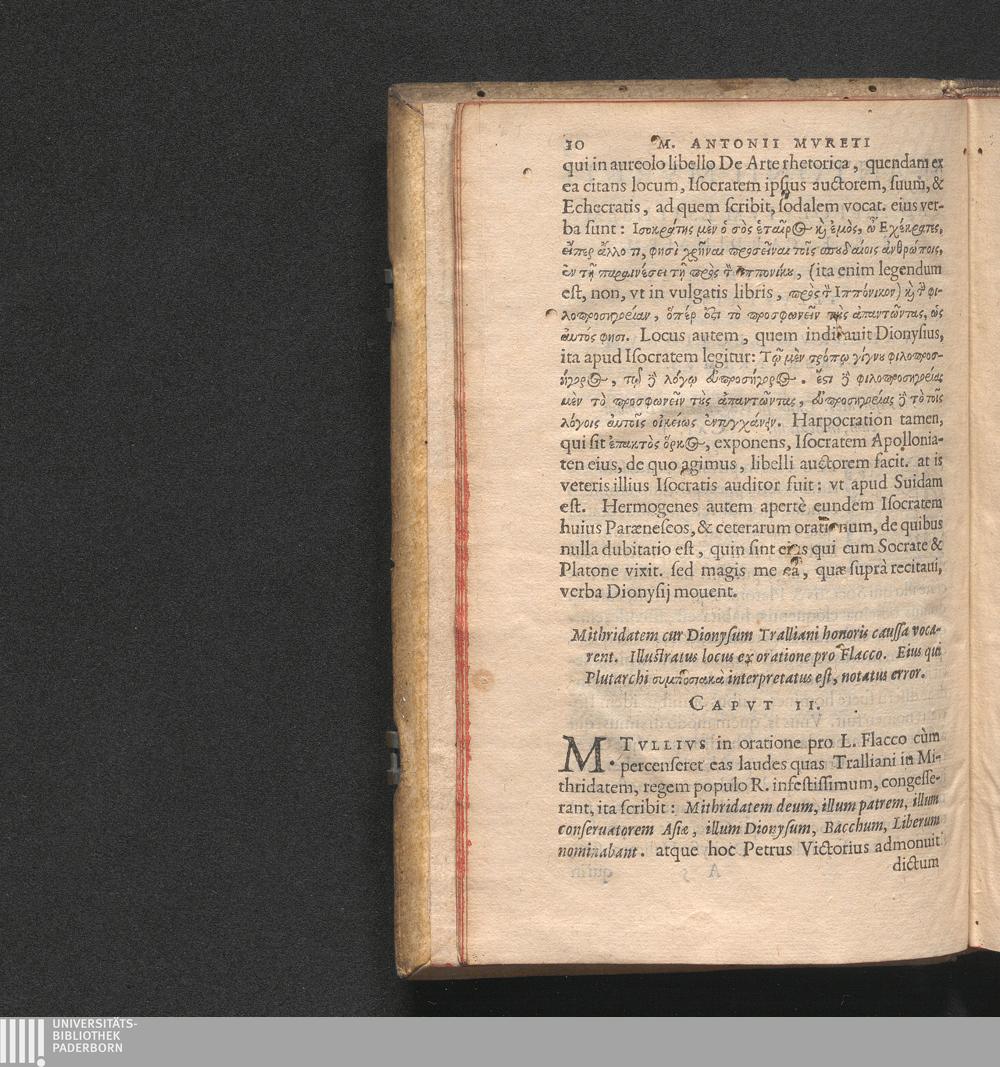 10 M. ANTONII MVRETI
qui in aureolo libello De Arte rhetorica, quendam ex
ea citans locum, Iſocratem ipſius auctorem, ſuum, &
Echecratis, ad quem ſcribit, ſodalem vocat. eius ver-
ba ſunt: Ισοκράτης μὲν ὁ σὸς ἑταῖρος καὶ ἐμὸς, ὦ Εχέκρατες,
εἴπερ ἄλλο τι, φησὶ χρῆναι προσεῖναι τοῖς σπουδαίοις ἀνθρώποις,
ἐν τῇ παραινέσει τῇ πρὸς τὸν Ιππονίκου, (ita enim legendum
eſt, non, vt in vulgatis libris, πρὸς τὸν Ιππόνικον) καὶ τὴν φι-
λοπροσηγορείαν, ὅπέρ ἐστι τὸ προσφωνεῖν τοὺς ἀπαντῶντας, ὡς
αὐτός φησι. Locus autem, quem indicauit Dionyſius,
ita apud Iſocratem legitur: Τῷ μὲν τρόπῳ γίγνου φιλοπροσ-
ήγορος, τῷ δὲ λόγῳ εὐπροσήγορος. ἔστι δὲ φιλοπροσηγορείας
μὲν τὸ προσφωνεῖν τοὺς ἀπαντῶντας, εὐπροσηγορείας δὲ τὸ τοῖς
λόγοις αὐτοῖς οἰκείως ἐντυγχάνειν. Harpocration tamen,
qui ſit ἐπακτὸς ὅρκος, exponens, Iſocratem Apollonia-
ten eius, de quo agimus, libelli auctorem facit. at is
veteris illius Iſocratis auditor fuit: vt apud Suidam
eſt. Hermogenes autem apertè eundem Iſocratem
huius Paræneſeos, & ceterarum orationum, de quibus
nulla dubitatio eſt, quin ſint eius qui cum Socrate &
Platone vixit. ſed magis me ea, quæ ſuprà recitaui,
verba Dionyſij mouent.
Mithridatem cur Dionyſum Tralliani honoris cauſſa voca-
rent. Illuſtratus locus ex oratione pro Flacco. Eius qui
Plutarchi συμποσιακὰ interpretatus eſt, notatus error.
CAPVT II.
M. TVLLIVS in oratione pro L. Flacco cùm
percenſeret eas laudes quas Tralliani in Mi-
thridatem, regem populo R. infeſtiſſimum, congeſſe-
rant, ita ſcribit: Mithridatem deum, illum patrem, illum
conſeruatorem Aſiæ, illum Dionyſum, Bacchum, Liberum
nominabant. atque hoc Petrus Victorius admonuit
dictum
UNIVERSITÄTS-
BIBLIOTHEK
PADERBORN